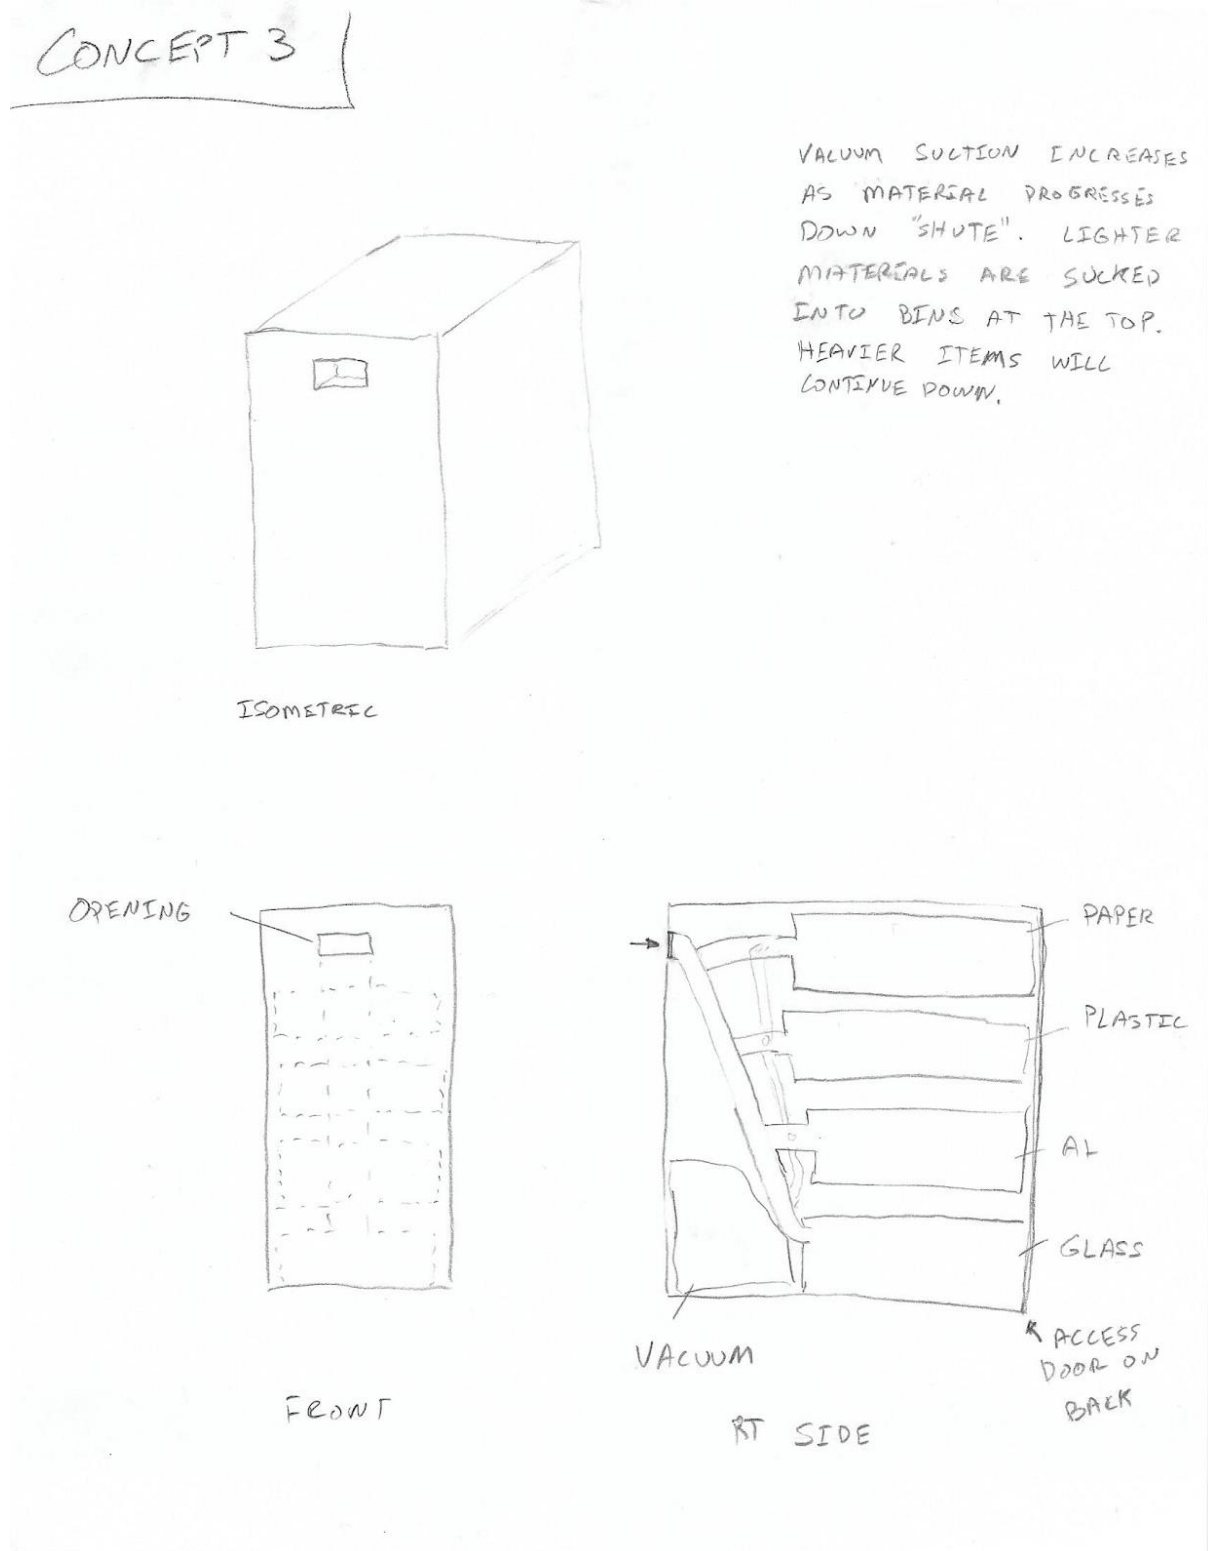 CONCEPT 3
VACUUM SUCTION INCREASES
AS MATERIAL PROGRESSES
DOWN "SHUTE". LIGHTER
MATERIALS ARE SUCKED
INTO BINS AT THE TOP.
HEAVIER ITEMS WILL
CONTINUE DOWN.
ISOMETRIC
OPENING
PAPER
PLASTIC
AL
GLASS
VACUUM
ACCESS
DOOR ON
BACK
FRONT
RT SIDE